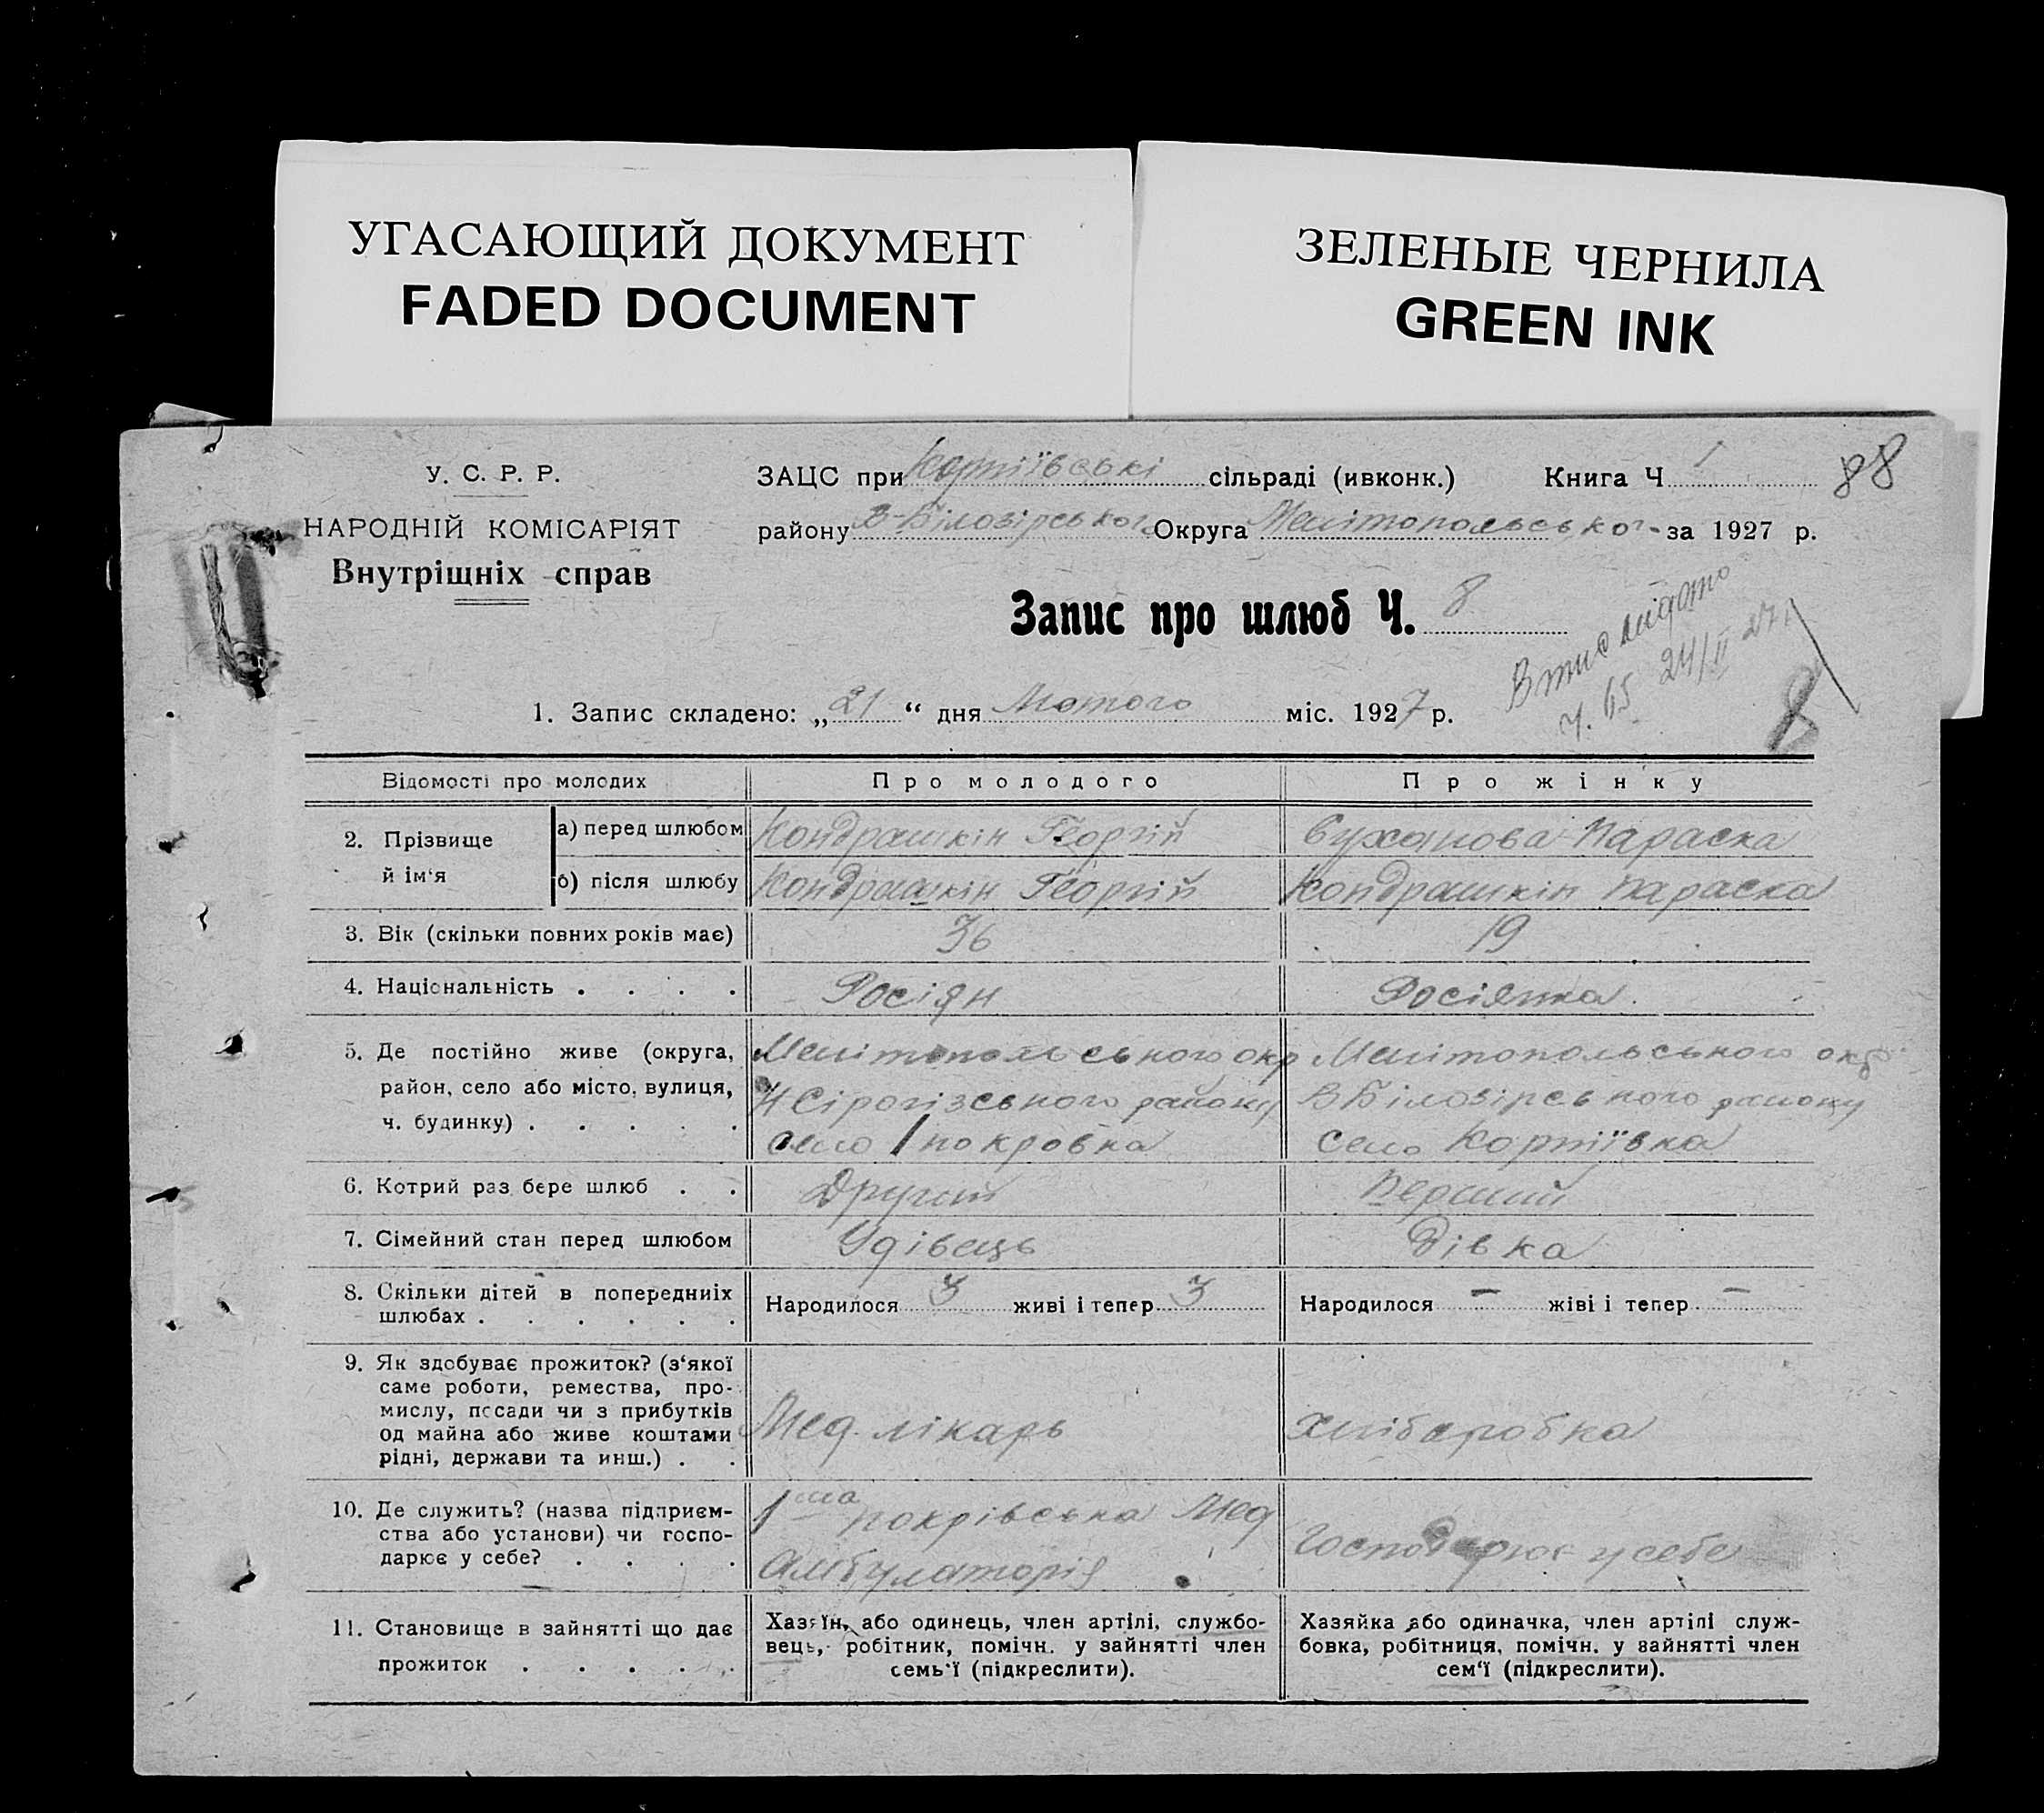 УГАСАЮЩИЙ ДОКУМЕНТ
FADED DOCUMENT
ЗЕЛЕНЫЕ ЧЕРНИЛА
GREEN INK
У. С. Р. Р.
НАРОДНІЙ КОМІСАРІЯТ
Внутрішніх справ
ЗАЦС при Корніївські сільраді (ивконк.) Книга Ч 1 88
району В-Білозірського Округа Мелітопольського за 1927 р.
Запис про шлюб Ч. 8
ч. 65 24/II 27
8
1. Запис складено: „21“ дня Лютого міс. 1927 р.
Відомості про молодих Про молодого Про жінку
2. Прізвище й ім‘я
а) перед шлюбом Кондрашкін Георгій Суханова Параска
б) після шлюбу Кондрашкін Георгій Кондрашкін Параска
3. Вік (скільки повних років має) 36 19
4. Національність . . . . Росіян Росіянка
5. Де постійно живе (округа, Мелітопольського окр Мелітопольського окр
район, село або місто, вулиця, Н Сірогізського району В Білозірського району
ч. будинку) . . . . . село 1 покровка село Корніївка
6. Котрий раз бере шлюб . . Другий Перший
7. Сімейний стан перед шлюбом Удівець Дівка
8. Скільки дітей в попередниіх Народилося 3 живі і тепер 3 Народилося — жіві і тепер —
шлюбах . . . . . .
9. Як здобуває прожиток? (з‘якої
саме роботи, ремества, про-
мислу, посади чи з прибутків
од майна або живе коштами Мед. лікарь хліборобка
рідні, держави та инш.) . .
10. Де служить? (назва підприєм- 1ша покрівська Мед
ства або установи) чи госпо-
дарює у себе? . . . . Амбулаторія Господарює у себе
11. Становище в зайнятті що дає
прожиток . . . . . .
Хазяїн, або одинець, член артілі, службо-
вець, робітник, помічн. у зайнятті член
семь‘ї (підкреслити).
Хазяйка або одиначка, член артілі служ-
бовка, робітниця, помічн. у зайнятті член
сем‘ї (підкреслити).